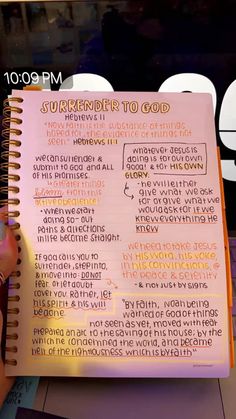 10:09 PM
SURRENDER TO GOD
Hebrews 11
"Now faith is the substance of things
hoped for, the evidence of things not
seen." Hebrews 11:1
we can surrender &
submit to GOD and All
of His promises.
Greater things
Blossom from
active obedience!
- when we start
going so- out
paths & directions
in life become straight.
If God calls you to
surrender, step into,
& invite Him, DO NOT
fear, or let doubt
cover you. Rather, let
HIS SPIRIT & HIS will
be done.
whatever Jesus is
doing is for our own
good & for HIS OWN
GLORY.
- he will either
give what we ask
for or give what we
would ask for if we
knew everything He
knew
We need to take Jesus
by His word, his voice,
His convictions, @
the peace & serenity
- & not just by signs
"By faith, Noah being
warned of God of things
not seen as yet, moved with fear
prepared an ark to the saving of his house; by the
which he condemned the world, and became
heir of the righteousness which is by faith"